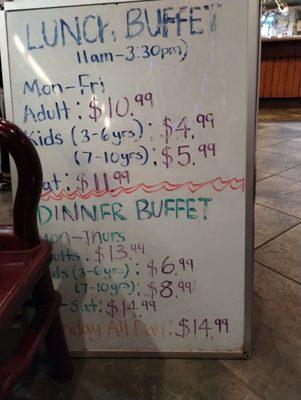 LUNCH BUFFET
11am-3:30pm)
Mon-Fri
Adult: $10.99
Kids (3-6yrs): $4.99
(7-10yrs): $5.99
at: $11.99
DINNER BUFFET
on-Thurs
ults: $13.99
ids (3-6yrs): $6.99
(7-10yrs): $8.99
-Sat: $14.99
nday All Day: $14.99